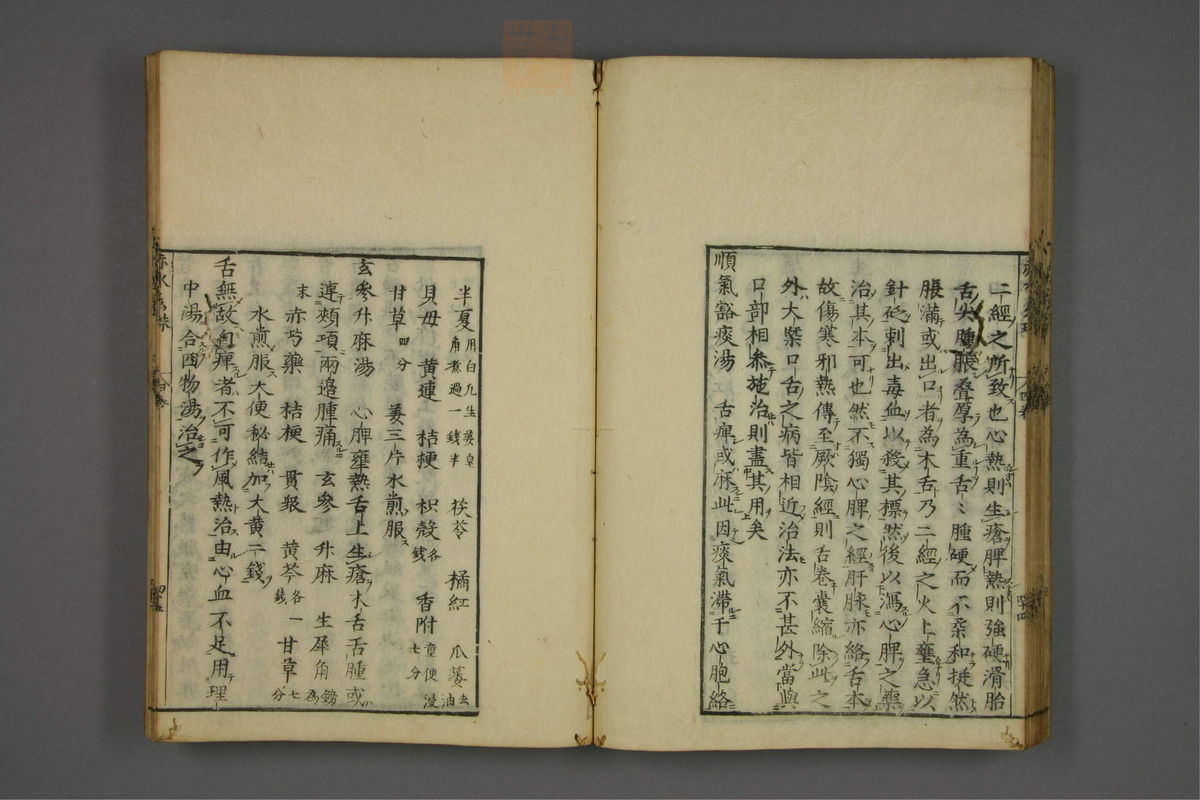 二經之所致也心熱則生瘡脾熱則強硬滑胎
舌尖腫脹叠厚為重舌〻腫硬而不柔和挺然
脹滿或出口者為木舌乃二經之火上壅急以
針砭刺出毒血以殺其標然後以瀉心脾之藥
治其本可也然不獨心脾之經肝脉亦絡舌本
故傷寒邪熱傳至厥陰經則舌卷囊縮除此之
外大槩口舌之病皆相近治法亦不甚外當與
口部相叅施治則盡其用矣
順氣豁痰湯 舌痺或麻此因痰氣滯于心胞絡
半夏 用白九生姜皂角煮過一錢半 茯苓 橘紅 瓜蔞 去油
貝母 黃連 桔梗 枳殼 各錢 香附 童便浸七分
甘草 四分 姜三片水煎服
玄參升麻湯 心脾壅熱舌上生瘡木舌舌腫或
連頰項兩邉腫痛 玄參 升麻 生犀角 鎊為末
赤芍藥 桔梗 貫衆 黃芩 各一錢 甘草 七分
水煎服大便秘結加大黃二錢
舌無故自痺者不可作風熱治由心血不足用理
中湯合四物湯治之